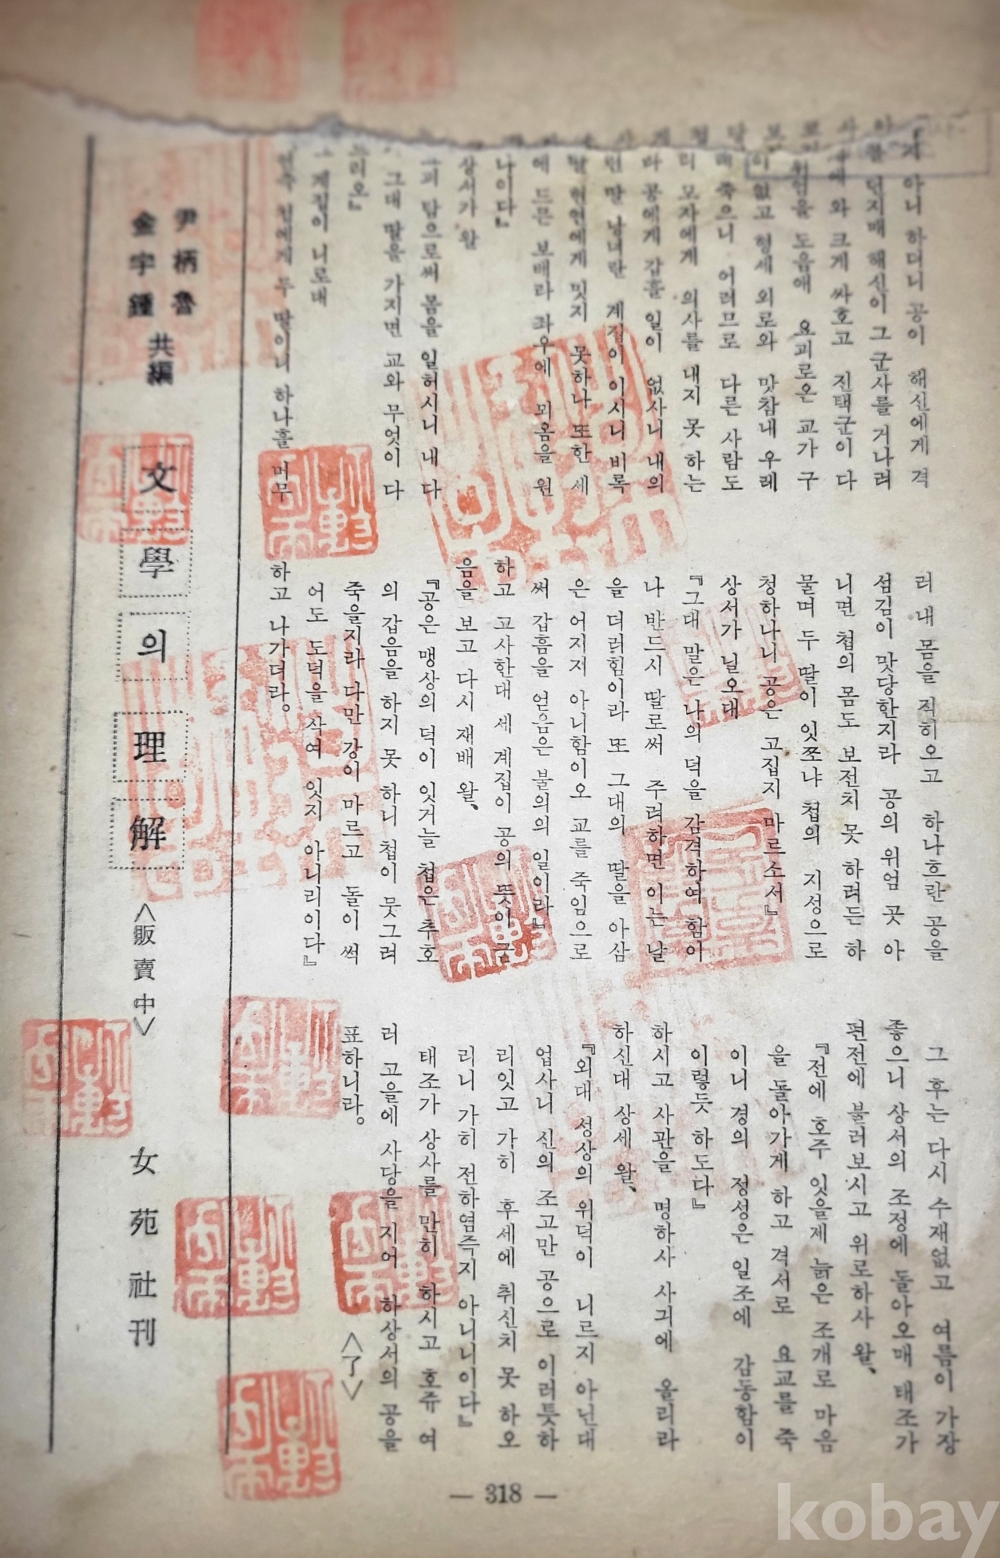 아니 하더니 공이 해신에게 격
던지매 해신이 그 군사를 거나려
와 크게 싸호고 진택군이 다
도음애 요괴로온 교가 구
없고 형세 외로와 맛참내 우레
죽으니 어려므로 다른 사람도
리 모자에게 의사를 내지 못 하는
라 공에게 갑흘 일이 없사니 내의
먼 말 남녀란 계집이 이시니 비록
현연에게 밋지 못하나 또한 세
에 드믄 보배라 좌우에 뫼옴을 원
나이다』
상서가 왈
탐으로써 몸을 일허시니 내 다
그대 딸을 가지면 교와 무엇이 다
르리오』
계집이 니로대
첩에게 두 딸이니 하나흘 머무
러 내 몸을 직히오고 하나흐란 공을
섬김이 맛당한지라 공의 위엄 곳 아
니면 첩의 몸도 보전치 못 하려든 하
물며 두 딸이 잇쪼냐 첩의 지성으로
청하나니 공은 고집지 마르소서』
상서가 닐오대
『그대 말은 나의 덕을 감격하여 함이
나 반드시 딸로써 주려하면 이는 날
을 더러힘이라 또 그대의 딸을 아삼
은 어지저 아니함이오 교를 죽임으로
써 갑흠을 얻음은 불의의 일이라』
하고 고사한대 세 계집이 공의 뜻이 굳
음을 보고 다시 재배 왈、
『공은 맹상의 덕이 잇거늘 첩은 추호
의 갑음을 하지 못 하니 첩이 뭇그려
죽을지라 다만 강이 마르고 돌이 썩
어도 도덕을 삭여 잇지 아니리이다』
하고 나가더라。
그 후는 다시 수재없고 여름이 가장
좋으니 상서의 조정에 돌아오매 태조가
편전에 불러보시고 위로하사 왈、
『전에 호주 잇을제 늙은 조개로 마음
을 돌아가게 하고 격서로 요교를 죽
이니 경의 정성은 일조에 감동함이
이렇듯 하도다』
하시고 사관을 명하사 사긔에 올리라
하신대 상세 왈、
『외대 성상의 위덕이 니르지 아닌대
업사니 신의 조고만 공으로 이러틋하
리잇고 가히 후세에 취신치 못 하오
리니 가히 전하염즉지 아니니이다』
태조가 상사를 만히 하시고 호쥬 여
러 고을에 사당을 지어 하상서의 공을
표하니라。
〈了〉
尹柄魯
金宇鍾
共編
文學의理解
〈販賣中〉
女苑社刊
― 318 ―
kobay